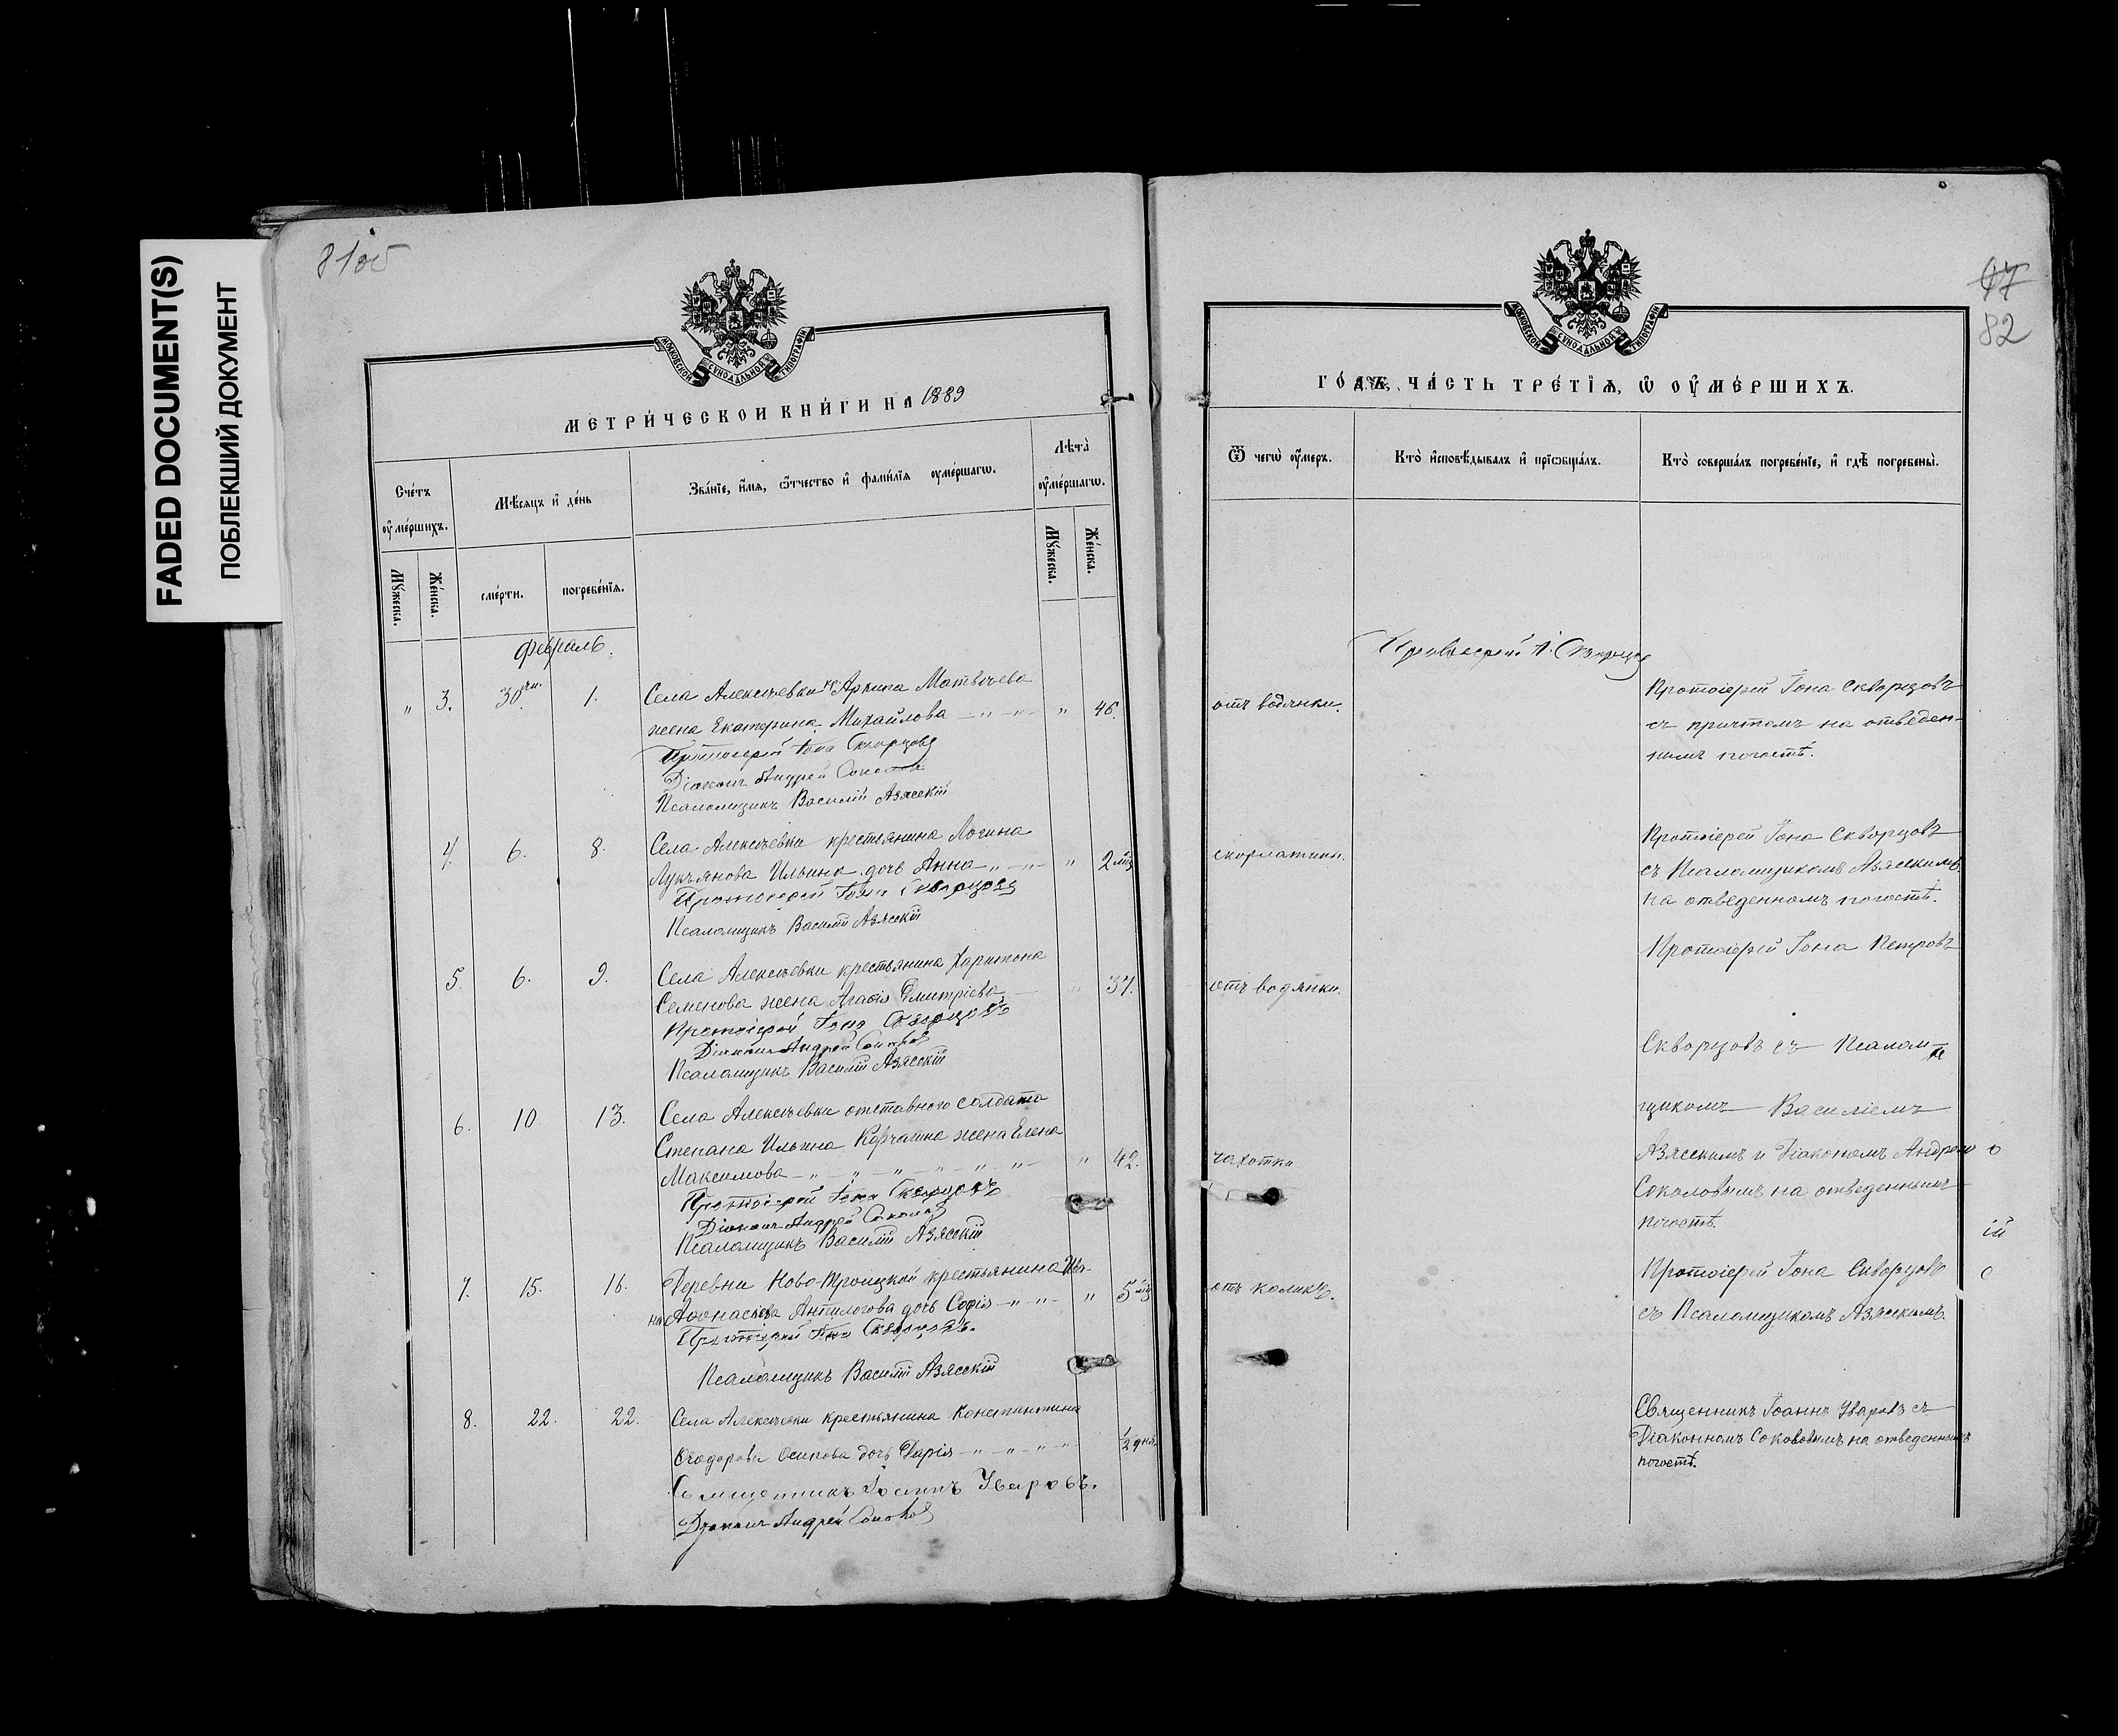 FADED DOCUMENT(S)
ПОБЛЕКШИЙ ДОКУМЕНТ
81об
МОСКОВСКОЙ СУНОДАЛЬНОЙ ТИПОГРАФІИ
МЕТРИ́ЧЕСКОИ КНИ́ГИ НА 1889
Сче́тъ ᲂу҆ме́ршихъ.
Мѣ́сяцъ и҆ де́нь
Зва́нїе, и҆́мя, ѻ҆́тчество и҆ фами́лїя ᲂу҆ме́ршагѡ.
Лѣ́та ᲂу҆ме́ршагѡ.
Мꙋ́жеска.
Же́нска.
сме́рти.
погребе́нїя.
Мꙋ́жеска.
Же́нска.
Февраль.
" 3. 30 1. Села Алексѣевки кр Архипа Матвѣева
жена Екатерина Михайлова " 46.
Протоіерей Іона Скворцовъ
Діаконъ Андрей Соколовъ
Псаломщикъ Василій Азясскій
4. 6. 8. Села Алексѣевки крестьянина Логина
Лукъянова Ильина дочь Анна " 2 мѣ
Протоіерей Іона Скворцовъ
Псаломщикъ Василій Азясскій
5. 6. 9. Села Алексѣевки крестьянина Харитона
Семенова жена Агафія Дмитріева 37.
Протоіерей Іона Скворцовъ
Діаконъ Андрей Соколовъ
Псаломщикъ Василій Азясскій
6. 10 13. Села Алексѣевки отставного солдата
Степана Ильина Корчагина жена Елена
Максимова " 42.
Протоіерей Іона Скворцовъ
Діаконъ Андрей Соколовъ
Псаломщикъ Василій Азясскій
7. 15. 16. Деревни Ново-Троицкой крестьянина Ива-
на Аѳонасіева Антилогова дочь Софія " 5 мѣ
Протоіерей Іона Скворцовъ.
Псаломщикъ Василій Азясскій
8. 22. 22. Села Алексѣевки крестьянина Константина
Ѳеодорова Осипова дочь Дарія 1/2 дня
Священникъ Іоаннъ Уваровъ.
Діаконъ Андрей Соколовъ
47
82
МОСКОВСКОЙ СУНОДАЛЬНОЙ ТИПОГРАФІИ
ГО́ДЪ, ЧА́СТЬ ТРЕ́ТЇЯ, Ѡ҆ ОУ҆МЕ́РШИХЪ.
Ѿ чегѡ̀ ᲂу҆́меръ.
Кто̀ и҆сповѣ́дывалъ и҆ прїѡбща́лъ.
Кто̀ соверша́лъ погребе́нїе, и҆ гдѣ̀ погребены̀.
Протоіерей І. Скворцовъ
отъ водянки.
Протоіерей Іона Скворцовъ
съ причтомъ на отведен-
номъ погостѣ.
скорлатины.
Протоіерей Іона Скворцовъ
съ Псаломщикомъ Азясскимъ
на отведенномъ погостѣ.
отъ водянки.
Протоіерей Іона Петровъ
Скворцовъ съ Псалом-
щикомъ Василіемъ
чахотки
Азясскимъ и Діакономъ Андреем
Соколовымъ на отведенномъ
погостѣ.
отъ коликъ.
Протоіерей Іона Скворцовъ
съ Псаломщикомъ Азясскимъ.
Священникъ Іоаннъ Уваровъ съ
Діакономъ Соколовымъ на отведенномъ
погостѣ.